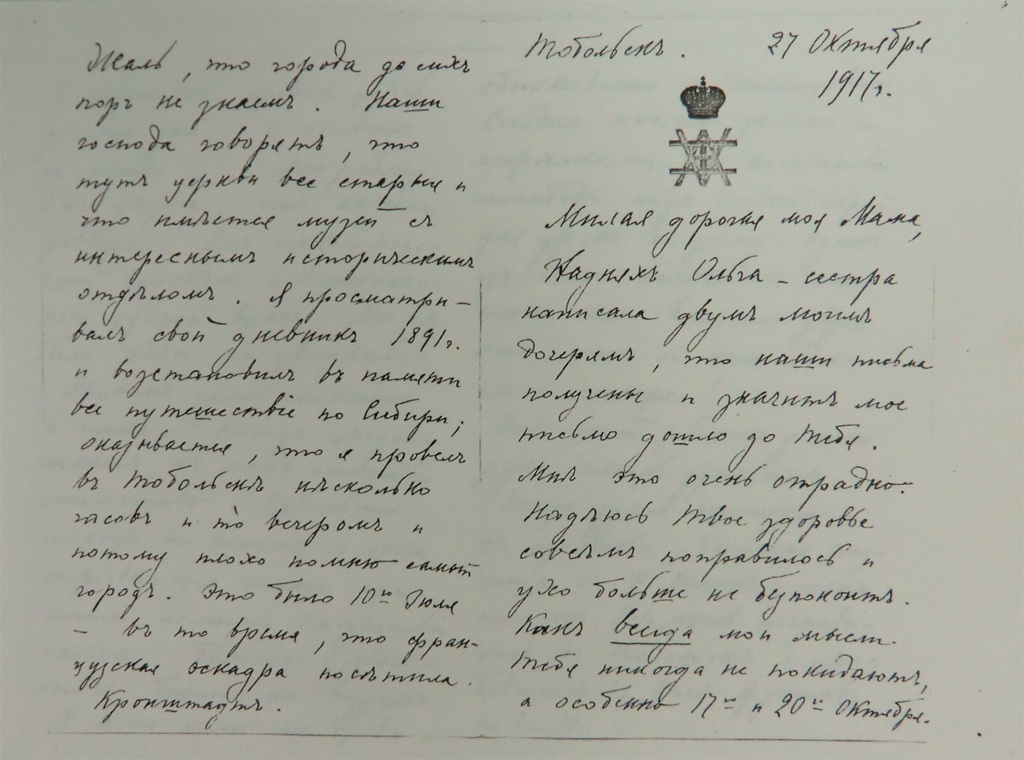 Тобольскъ. 27 Октября
1917г.
Милая дорогая моя Мама,
На дняхъ Ольга – сестра
написала двумъ моимъ
дочерямъ, что наши письма
получены и значитъ мое
письмо дошло до Тебя.
Мнѣ это очень отрадно.
Надѣюсь Твое здоровье
совсѣмъ поправилось и
ухо больше не безпокоитъ.
Какъ всегда мои мысли
Тебя никогда не покидаютъ,
а особенно 17го и 20го Октября.
Жаль, что города до сихъ
поръ не знаемъ. Наши
господа говорятъ, что
тутъ церкви все старыя и
что имѣется музей съ
интереснымъ историческимъ
отдѣломъ. Я просматри–
валъ свой дневникъ 1891г.
и возстановилъ въ памяти
все путешествіе по Сибири;
оказывается, что я провелъ
въ Тобольскѣ нѣсколько
часовъ и то вечеромъ и
потому плохо помню самый
городъ. Это было 10го Июля
– въ то время, что фран–
цузская эскадра посѣтила
Кронштадтъ.